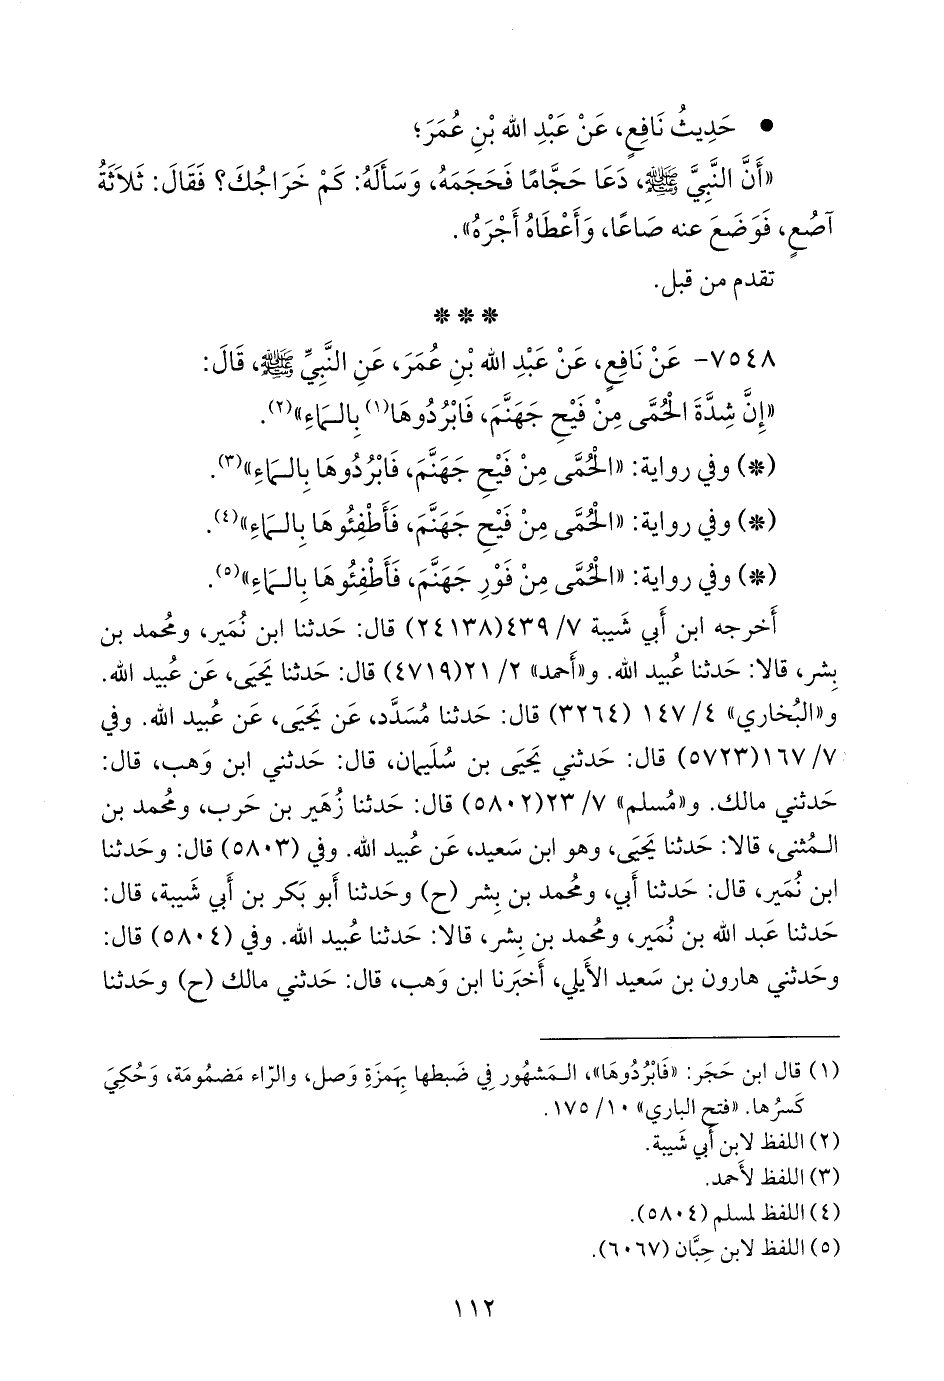 • حَدِيثُ نَافِعٍ، عَنْ عَبْدِ الله بْنِ عُمَرَ؛
«أَنَّ النَّبِيَّ ﷺ، دَعَا حَجَّامًا فَحَجَمَهُ، وَسَأَلَهُ: كَمْ خَرَاجُكَ؟ فَقَالَ: ثَلَاثَةُ
آصُعٍ، فَوَضَعَ عنه صَاعًا، وَأَعْطَاهُ أَجْرَهُ».
تقدم من قبل.
***
٧٥٤٨- عَنْ نَافِعٍ، عَنْ عَبْدِ الله بْنِ عُمَرَ، عَنِ النَّبِيِّ ﷺ، قَالَ:
«إِنَّ شِدَّةَ الْحُمَّى مِنْ فَيْحِ جَهَنَّمَ، فَابْرُدُوهَا(١) بِالمَاءِ»(٢).
(*) وفي رواية: «الْحُمَّى مِنْ فَيْحِ جَهَنَّمَ، فَابْرُدُوهَا بِالمَاءِ»(٣).
(*) وفي رواية: «الْحُمَّى مِنْ فَيْحِ جَهَنَّمَ، فَأَطْفِئُوهَا بِالمَاءِ»(٤).
(*) وفي رواية: «الْحُمَّى مِنْ فَوْرِ جَهَنَّمَ، فَأَطْفِئُوهَا بِالمَاءِ»(٥).
أَخرجه ابن أَبي شَيبة ٧/ ٤٣٩(٢٤١٣٨) قال: حَدثنا ابن نُمَير، ومُحمد بن
بِشر، قالا: حَدثنا عُبيد الله. و«أَحمد» ٢/ ٢١(٤٧١٩) قال: حَدثنا يَحيَى، عَن عُبيد الله.
و«البُخاري» ٤/ ١٤٧ (٣٢٦٤) قال: حَدثنا مُسَدَّد، عَن يَحيَى، عَن عُبيد الله. وفي
٧/ ١٦٧(٥٧٢٣) قال: حَدثني يَحيَى بن سُلَيمان، قال: حَدثني ابن وَهب، قال:
حَدثني مالك. و«مُسلم» ٧/ ٢٣(٥٨٠٢) قال: حَدثنا زُهَير بن حَرب، ومُحمد بن
المُثنى، قالا: حَدثنا يَحيَى، وهو ابن سَعيد، عَن عُبيد الله. وفي (٥٨٠٣) قال: وحَدثنا
ابن نُمَير، قال: حَدثنا أَبي، ومُحمد بن بِشر (ح) وحَدثنا أَبو بَكر بن أَبي شَيبة، قال:
حَدثنا عَبد الله بن نُمَير، ومُحمد بن بِشر، قالا: حَدثنا عُبيد الله. وفي (٥٨٠٤) قال:
وحَدثني هارون بن سَعيد الأَيلي، أَخبَرنا ابن وَهب، قال: حَدثني مالك (ح) وحَدثنا
(١) قال ابن حَجَر: «فَابْرُدُوهَا»، المَشهُور فِي ضَبطها بِهَمزَةِ وَصل، والرّاء مَضمُومَة، وَحُكِيَ
كَسرُها. «فتح الباري» ١٠/ ١٧٥.
(٢) اللفظ لابن أَبي شَيبة.
(٣) اللفظ لأَحمد.
(٤) اللفظ لمسلم (٥٨٠٤).
(٥) اللفظ لابن حِبَّان (٦٠٦٧).
١١٢